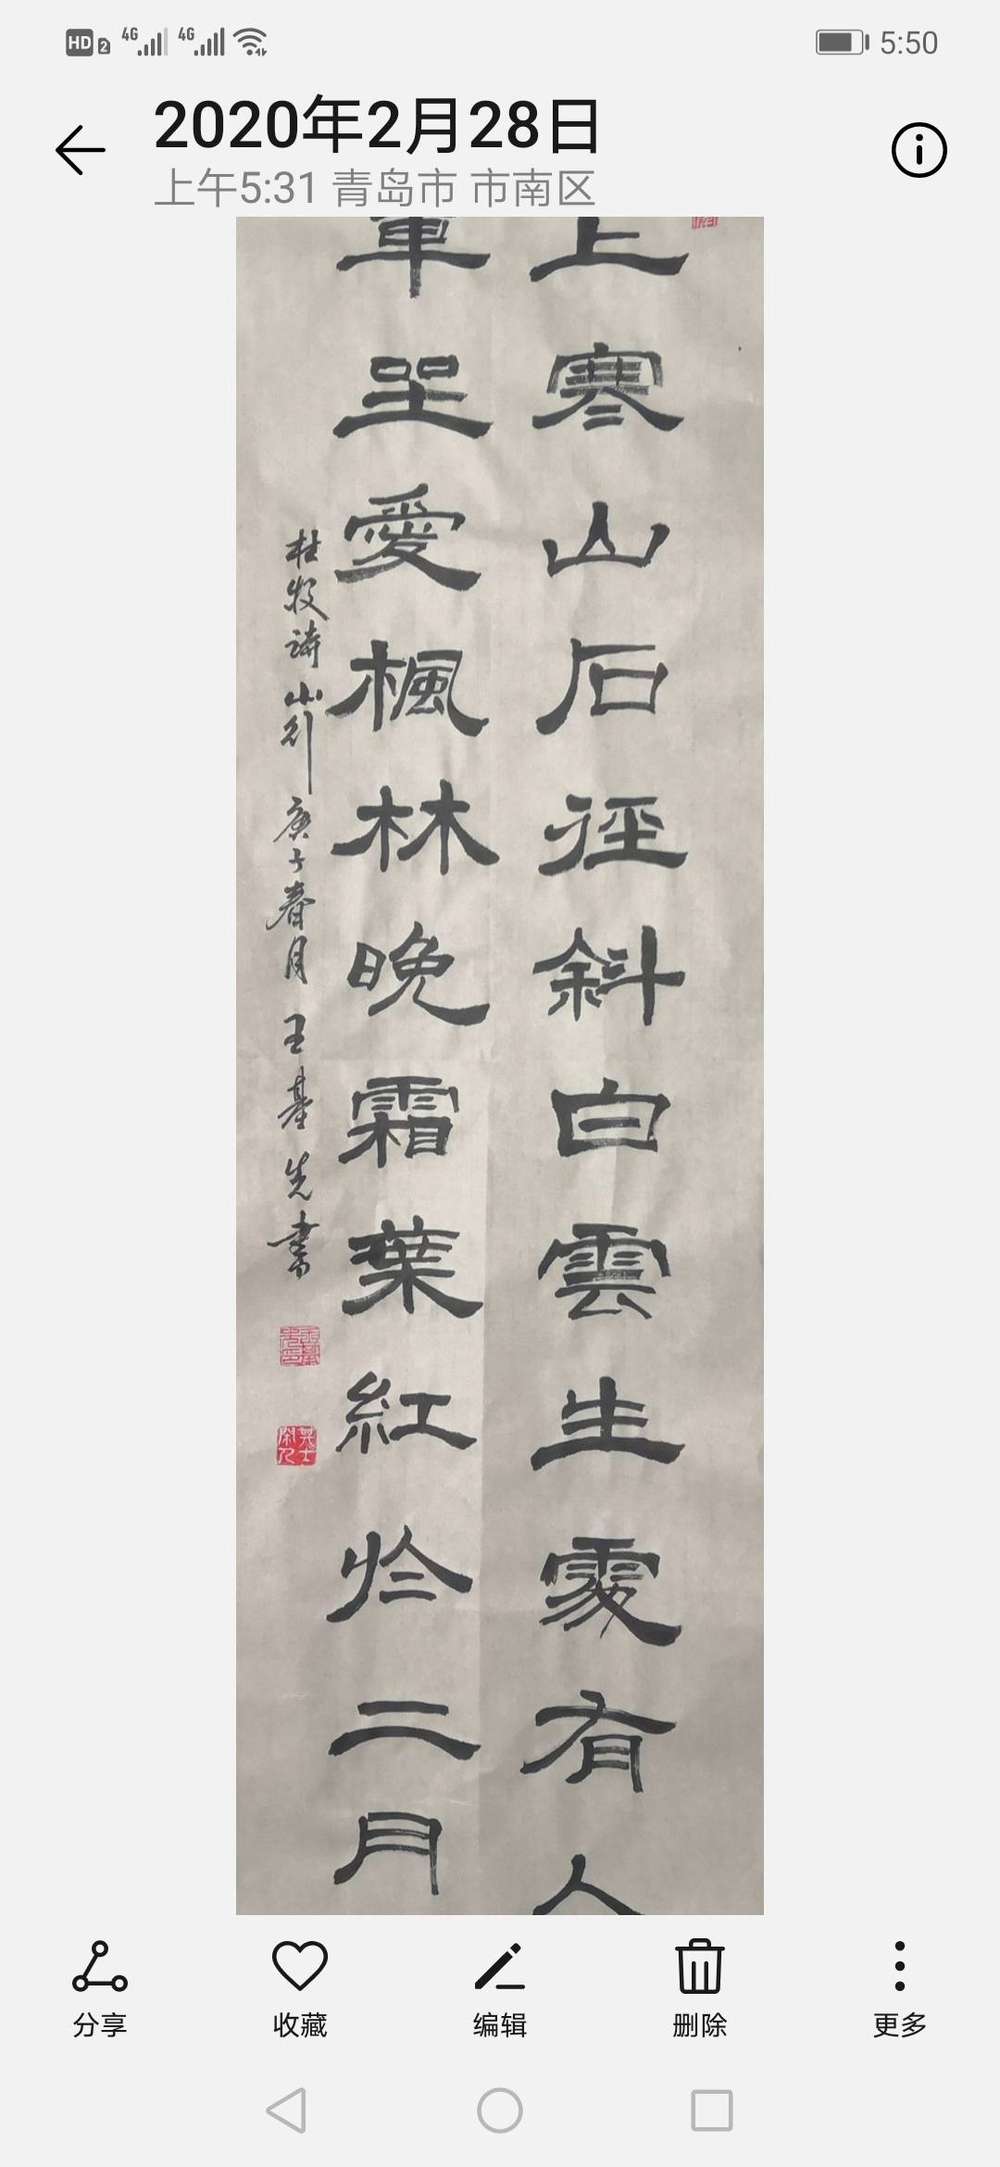 HD 2 4G 4G 5:50
2020年2月28日
上午5:31 青岛市 市南区
上寒山石径斜白雲生處有人
車坐愛楓林晚霜葉紅於二月
杜牧诗山行庚子春月王基先書
分享 收藏 编辑 删除 更多